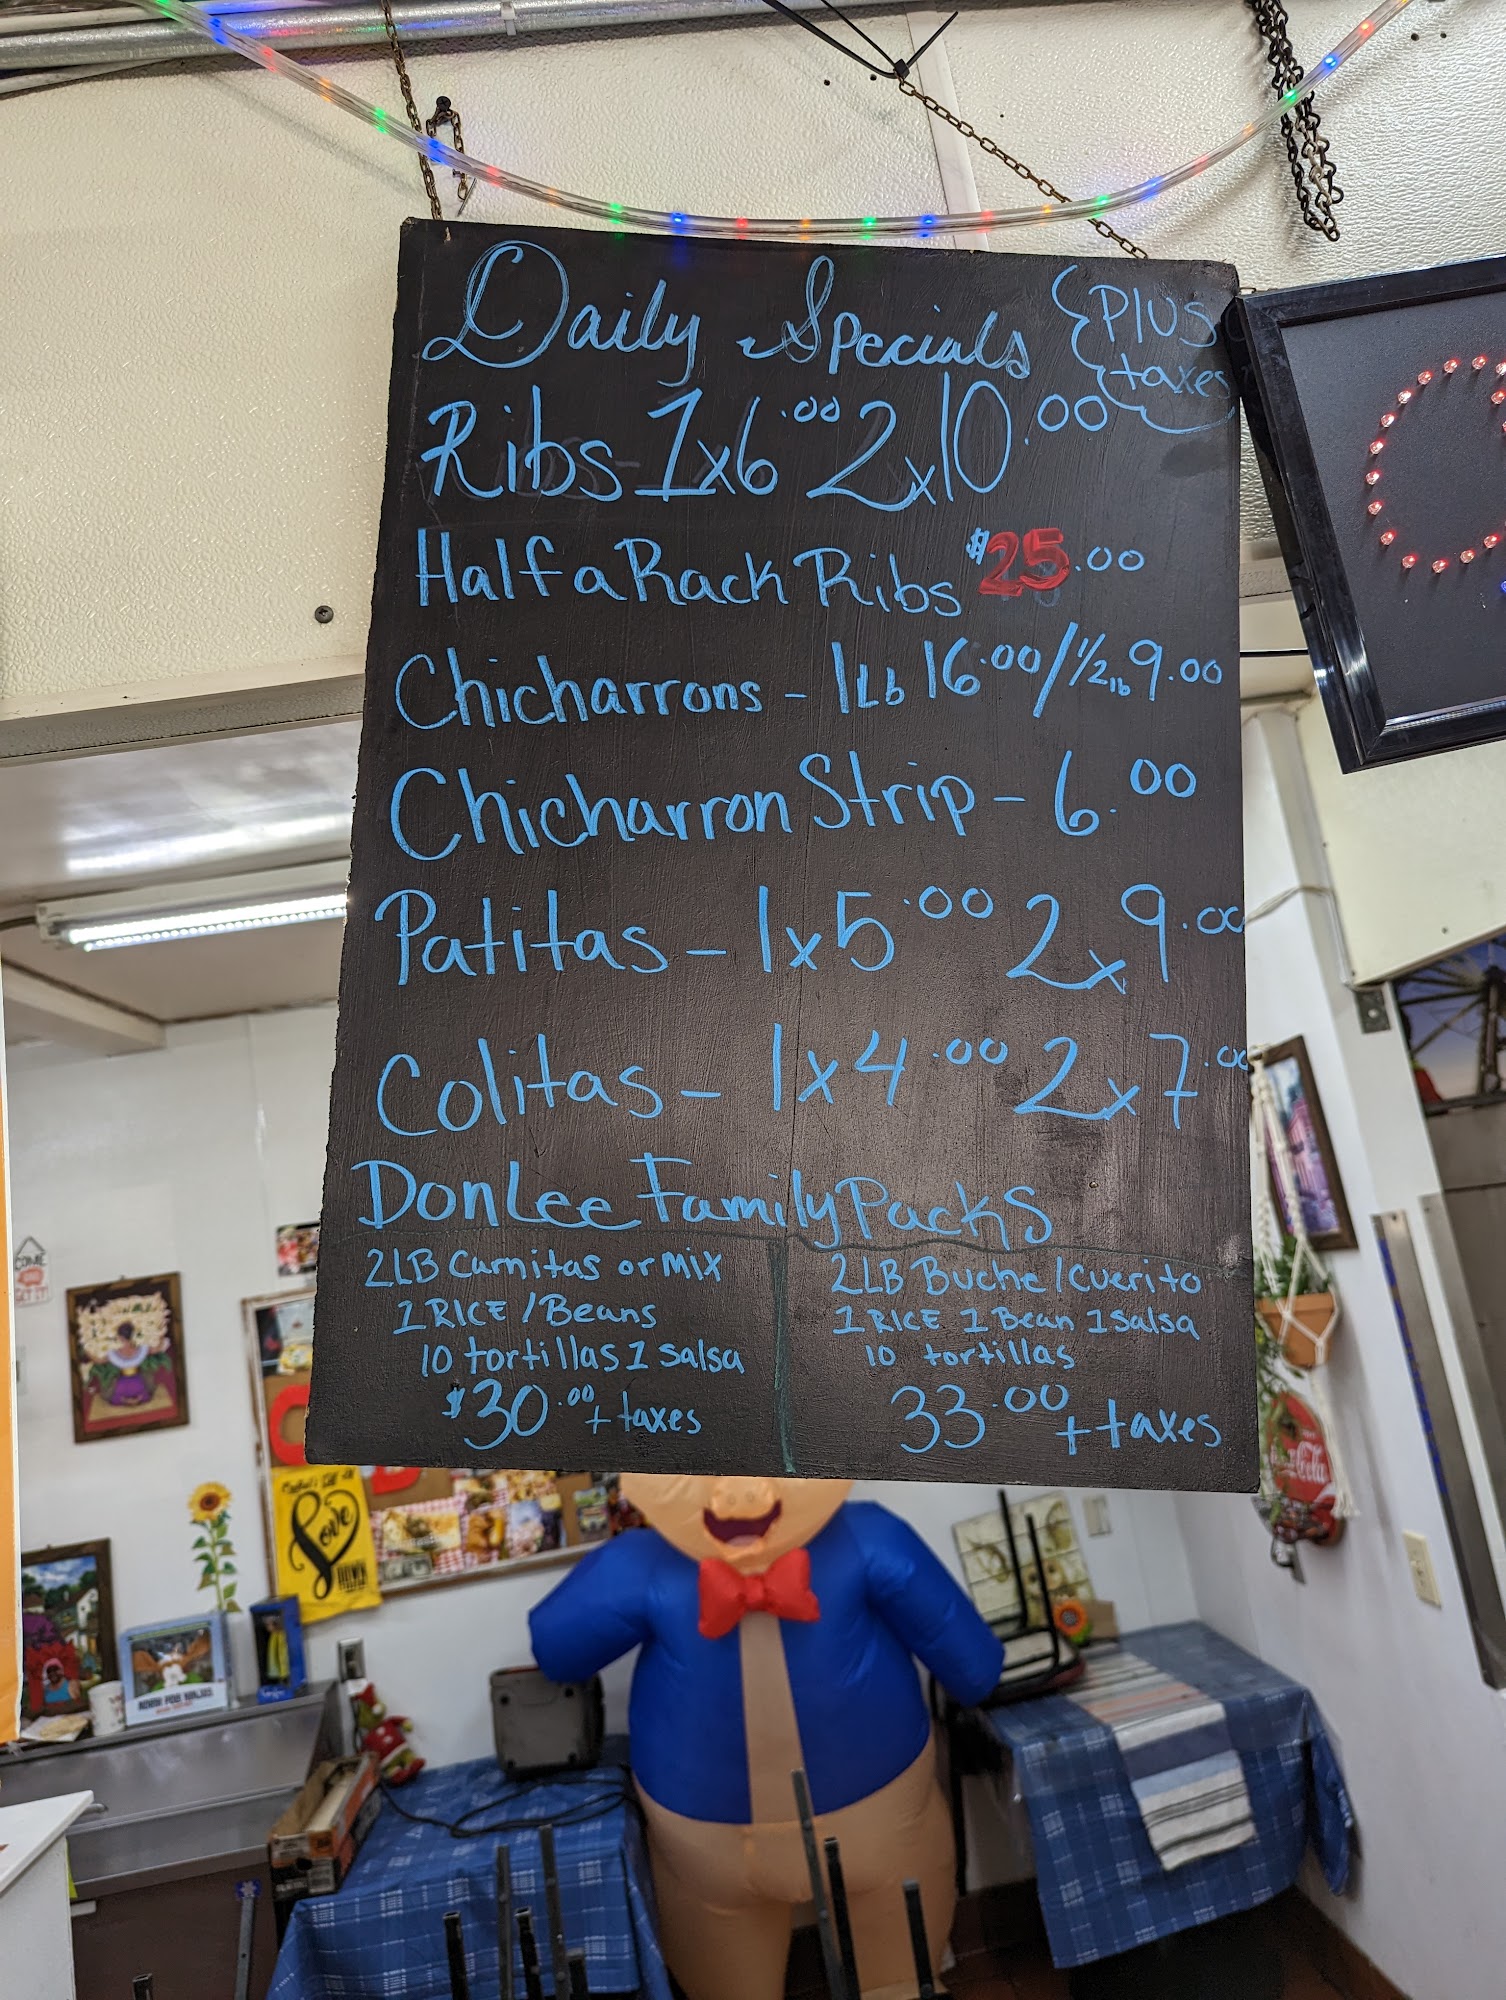 Daily Specials
Plus
taxes
Ribs - 1x6.00 2x10.00
Half a Rack Ribs $25.00
Chicharrons - 1Lb 16.00/ 1/2 lb 9.00
Chicharron Strip - 6.00
Patitas - 1x5.00 2x9.00
Colitas - 1x4.00 2x7.00
DonLee Family Packs
2LB Carnitas or Mix
1 RICE / Beans
10 tortillas 1 salsa
$30.00 + taxes
2LB Buche / Cuerito
1 RICE 1 Bean 1 Salsa
10 tortillas
33.00 + taxes
COME
GET IT!
Love
Coca-Cola